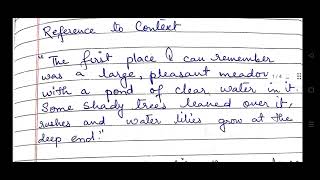 Reference to Context
"The first place I can remember
was a large, pleasant meadow
with a pond of clear water in it.
Some shady trees leaned over it,
rushes and water lilies grow at the
deep end."